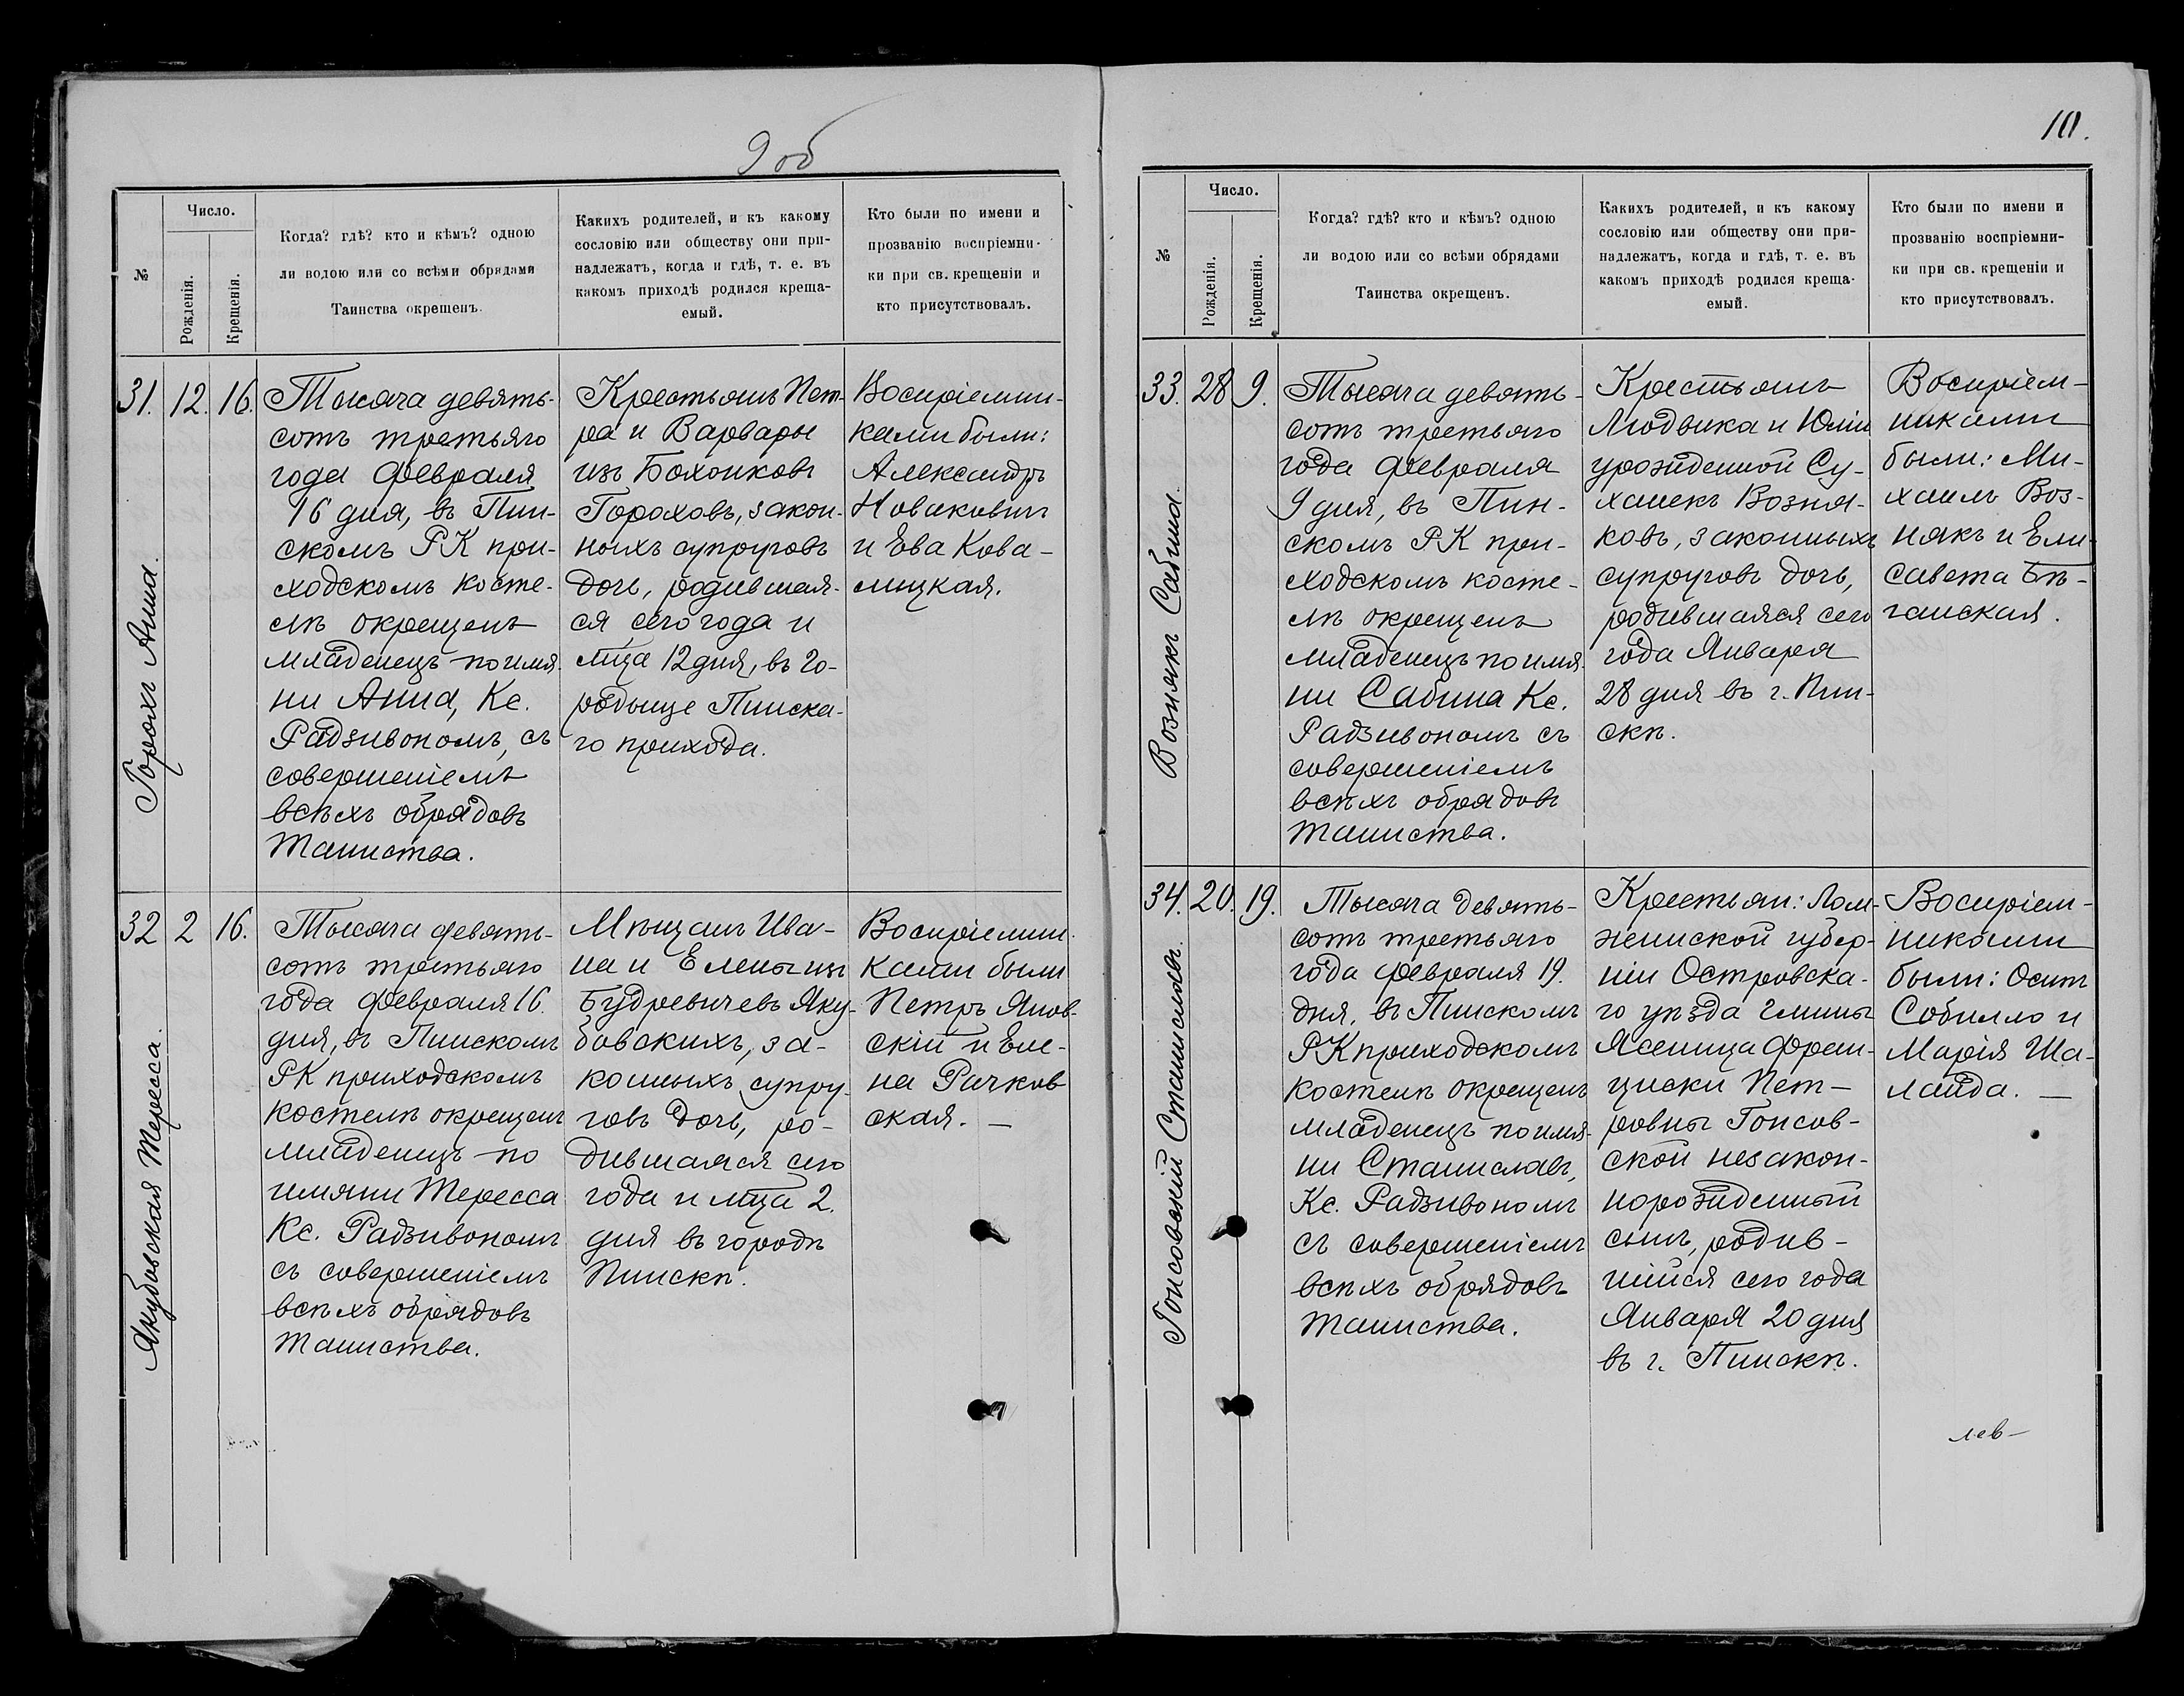 9 об
№
Число.
Рожденія.
Крещенія.
Когда? гдѣ? кто и кѣмъ? одною
ли водою или со всѣми обрядами
Таинства окрещенъ.
Какихъ родителей, и къ какому
сословію или обществу они при-
надлежатъ, когда и гдѣ, т. е. въ
какомъ приходѣ родился креща-
емый.
Кто были по имени и
прозванію воспріемни-
ки при св. крещеніи и
кто присутствовалъ.
31. 12. 16.
Горохъ Анна.
Тысяча девять-
сотъ третьяго
года февраля
16 дня, въ Пин-
скомъ РК при-
ходскомъ косте-
лѣ окрещенъ
младенецъ по имя-
ни Анна, Кс.
Радзивономъ, съ
совершеніемъ
всѣхъ обрядовъ
Таинства.
Крестьянъ Пет-
ра и Варвары
изъ Бохонковъ
Гороховъ, закон-
ныхъ супруговъ
дочь, родившая-
ся сего года и
мца 12 дня, въ го-
родыще Пинска-
го прихода.
Воспріемни-
ками были:
Александръ
Новаковичъ
и Ева Кова-
лицкая.
32 2 16.
Якубовская Тересса.
Тысяча девять-
сотъ третьяго
года февраля 16
дня, въ Пинскомъ
РК приходскомъ
костелѣ окрещенъ
младенецъ по
имяни Тересса
Кс. Радзивономъ
съ совершеніемъ
всѣхъ обрядовъ
Таинства.
Мѣщанъ Ива-
на и Елены изъ
Будревичевъ Яку-
бовскихъ, за-
конныхъ супру-
говъ дочь, ро-
дившаяся сего
года и мца 2.
дня въ городѣ
Пинскѣ.
Воспріемни-
ками были
Петръ Янов-
скій и Еле-
на Рачков
ская. —
10.
№
Число.
Рожденія.
Крещенія.
Когда? гдѣ? кто и кѣмъ? одною
ли водою или со всѣми обрядами
Таинства окрещенъ.
Какихъ родителей, и къ какому
сословію или обществу они при-
надлежатъ, когда и гдѣ, т. е. въ
какомъ приходѣ родился креща-
емый.
Кто были по имени и
прозванію воспріемни-
ки при св. крещеніи и
кто присутствовалъ.
33. 28 9.
Вознякъ Сабина.
Тысяча девять-
сотъ третьяго
года февраля
9 дня, въ Пин-
скомъ РК при-
ходскомъ косте-
лѣ окрещенъ
младенецъ по имя-
ни Сабина Кс.
Радзивономъ съ
совершеніемъ
всѣхъ обрядовъ
Таинства.
Крестьянъ
Людвика и Юліи
урожденной Су-
ханекъ Возня-
ковъ, законныхъ
супруговъ дочь,
родившаяся сего
года Января
28 дня въ г. Пин-
скѣ.
Воспріем-
никами
были: Ми-
хаилъ Воз-
някъ и Ели-
савета Бѣ-
ганская.
34. 20. 19.
Гонсовскій Станиславъ.
Тысяча девять-
сотъ третьяго
года февраля 19.
дня, въ Пинскомъ
РК приходскомъ
костелѣ окрещенъ
младенецъ по имя-
ни Станиславъ,
Кс. Радзивономъ
съ совершеніемъ
всѣхъ обрядовъ
Таинства.
Крестьян: Лом-
женской губер-
ніи Островска-
го уѣзда гмины
Ясеница Фран-
циски Пет-
ровны Гонсов-
ской незакон-
норожденный
сынъ, родив-
шійся сего года
Января 20 дня
въ г. Пинскѣ.
Воспріем-
никами
были: Осипъ
Собилло и
Марія Ша-
лайда. —
лев—